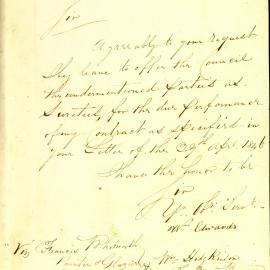 Sir
Agreeably to your request
I beg leave to offer the Council
the undermentioned Parties as
Sureties for the due Performance
of my Contract as specified in
your Letter of the 29th
I have the honor to be
Sir
Yr Obt Servt
Wm Edwards
Viz Francis
Painter & Glazier
Wm Hodgkinson